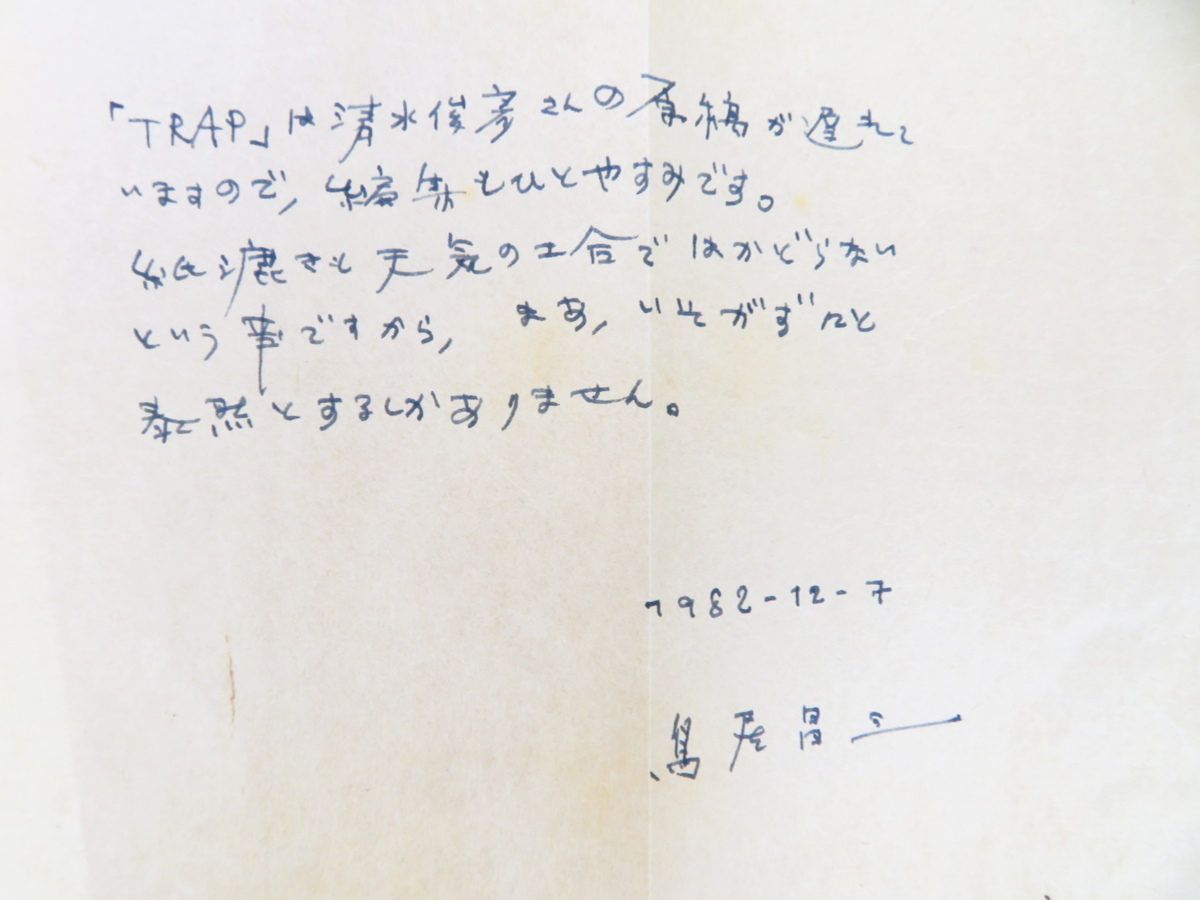 「TRAP」は清水俊彦さんの原稿が遅れて
いますので、編集もひとやすみです。
紙漉きも天気の工合ではかどらない
という事ですから、まあ、いそがずにと
泰然とするしかありません。
1982-12-7
鳥居昌三